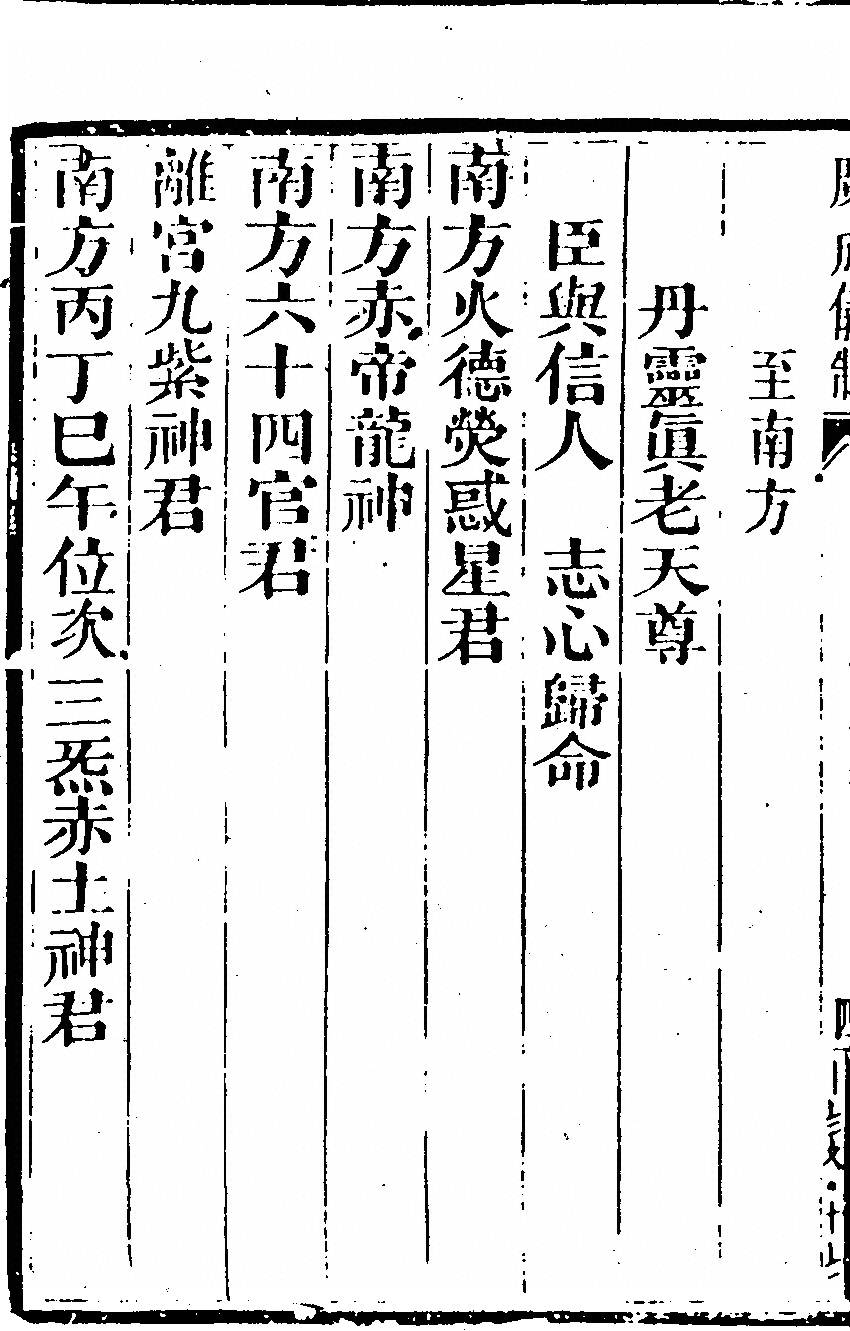 至南方
丹靈眞老天尊
臣與信人　志心歸命
南方火德熒惑星君
南方赤帝龍神
南方六十四官君
離宮九紫神君
南方丙丁巳午位次三炁赤土神君